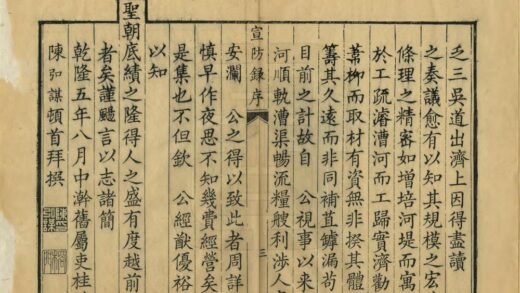 乏三吳道出濟上因得盡讀
之奏議愈有以知其規模之宏
條理之精密如增培河堤而寓
於工疏濬漕河而工歸實濟勸
葦柳而取材有資無非揆其體
籌其久遠而非同補苴罅漏苟
目前之計故自 公視事以來
河順軌漕渠暢流糧艘利涉人
宣防錄序
三
安瀾 公之得以致此者周詳
慎早作夜思不知幾費經營矣
是集也不但欽 公經猷優裕
以知
聖朝底績之隆得人之盛有度越前
者矣謹颺言以志諸簡
乾隆五年八月中澣舊屬吏桂
陳弘謀頓首拜撰